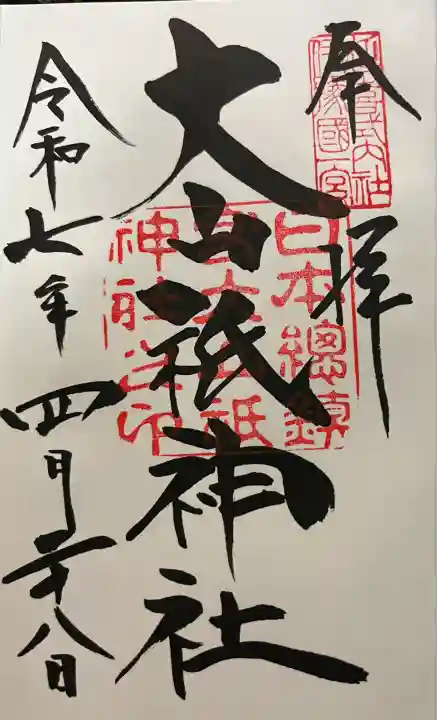 奉拝
伊豫國一宮
日本總鎮
大山祇神社
神社之印
令和七年四月二十八日